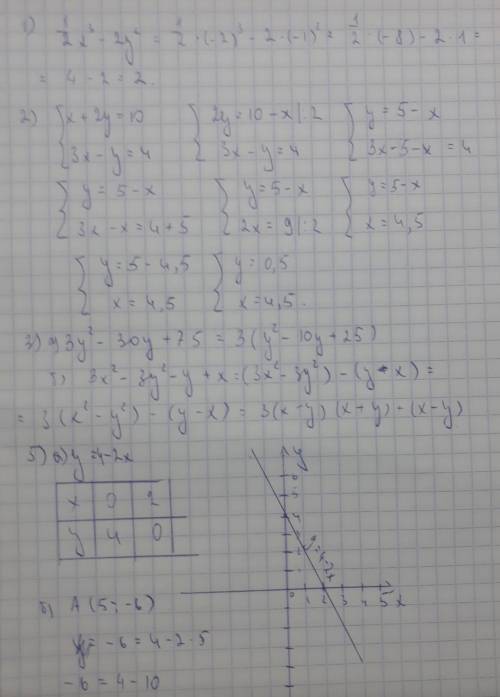 1) 1/2 x³ - 2y² = 1/2 · (-2)³ - 2 · (-1)² = 1/2 · (-8) - 2 · 1 =
= 4 - 2 = 2.
2) { x + 2y = 10 { 2y = 10 - x |:2 { y = 5 - x
3x - y = 4 3x - y = 4 3x - 5 - x = 4
{ y = 5 - x { y = 5 - x { y = 5 - x
3x - x = 4 + 5 2x = 9 |:2 x = 4,5
{ y = 5 - 4,5 { y = 0,5
x = 4,5 x = 4,5.
3) a) 3y² - 30y + 75 = 3(y² - 10y + 25)
б) 3x² - 3y² - y + x = (3x² - 3y²) - (y - x) =
= 3(x² - y²) - (y - x) = 3(x - y)(x + y) - (x - y)
5) a) y = 4 - 2x
x 0 2
y 4 0
y
6
5
4
y = 4 - 2x
0 1 2 3 4 5 x
б) A (5; -6)
y = -6 = 4 - 2 · 5
-6 = 4 - 10